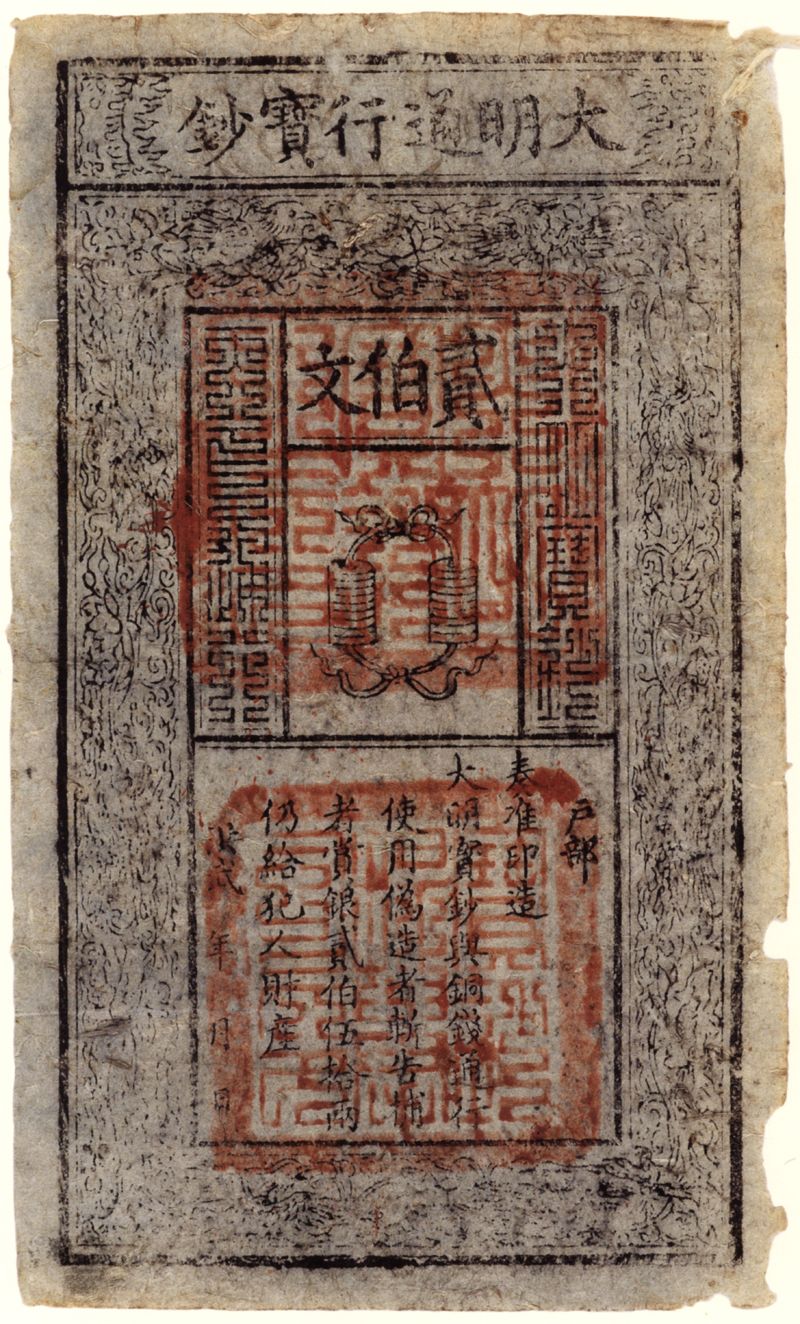 大明通行寶鈔
大明寶鈔
貳伯文
天下通行
戶部
奏准印造
大明寶鈔與銅錢通行
使用僞造者斬告捕
者賞銀貳伯伍拾兩
仍給犯人財産
洪武 年 月 日